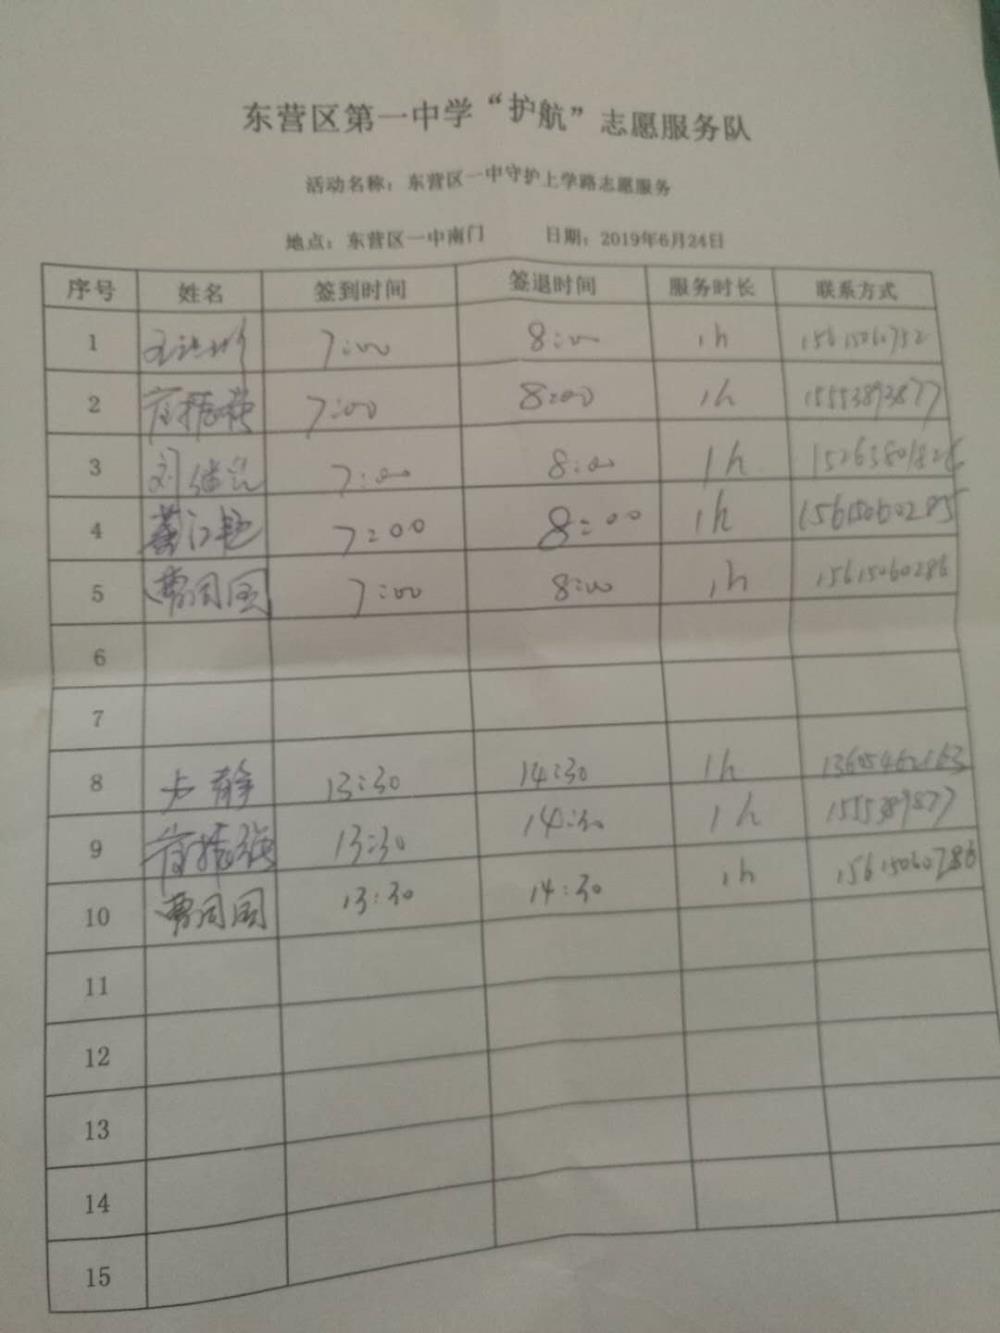 东营区第一中学“护航”志愿服务队
活动名称：东营区一中守护上学路志愿服务
地点：东营区一中南门 日期：2019年6月24日
序号 姓名 签到时间 签退时间 服务时长 联系方式
1 7:00 8:00 1h
2 7:00 8:00 1h 15553893877
3 7:00 8:00 1h
4 7:00 8:00 1h 15615060285
5 曹同国 7:00 8:00 1h 15615060286
6
7
8 卢静 13:30 14:30 1h 13605462163
9 13:30 14:30 1h
10 曹同国 13:30 14:30 1h 15615060286
11
12
13
14
15